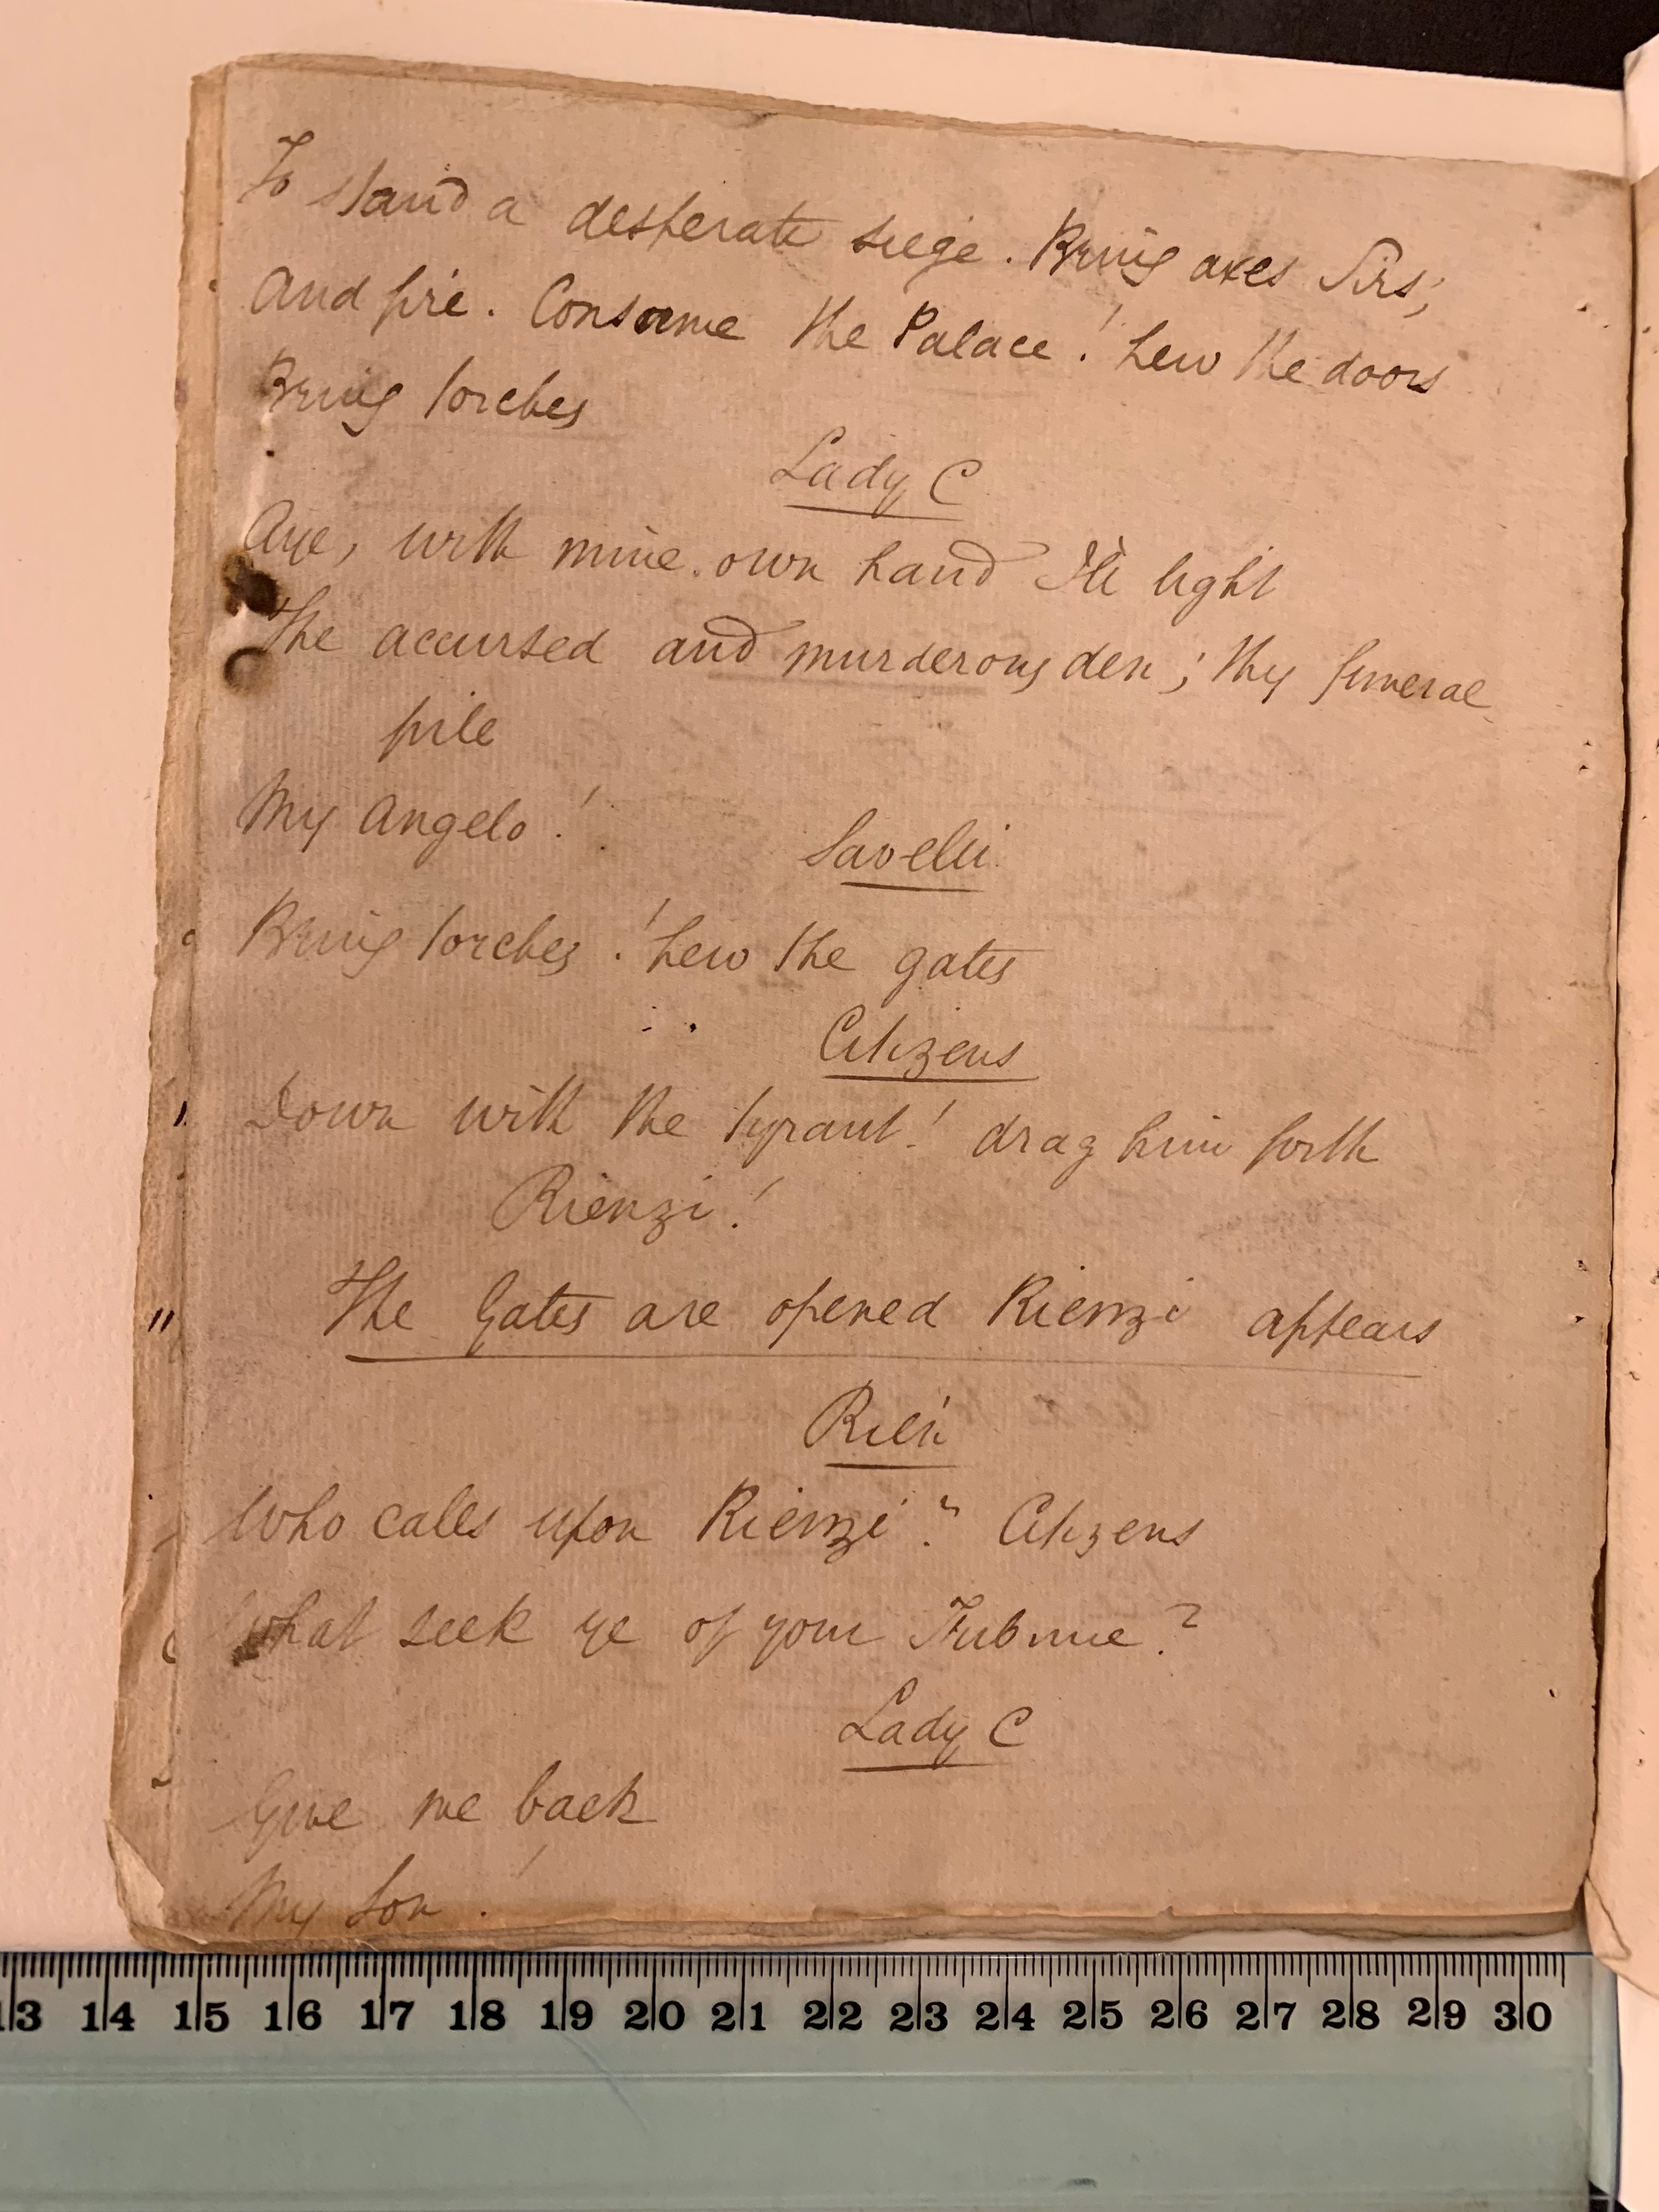 To stand a desperate siege. Bring axes Sirs;
And fire. Consume the Palace! hew the doors
Bring torches
Lady C
Aye, with mine own hand I'll light
The accursed and murderous den; thy funeral
pile
My Angelo!
Savelli
Bring torches! hew the gates
Citizens
Down with the tyrant! drag him forth
Rienzi!
The Gates are opened Rienzi appears
Rien
Who calls upon Rienzi? Citizens
What seek ye of your Tribune?
Lady C
Give me back
My Son!
13 14 15 16 17 18 19 20 21 22 23 24 25 26 27 28 29 30